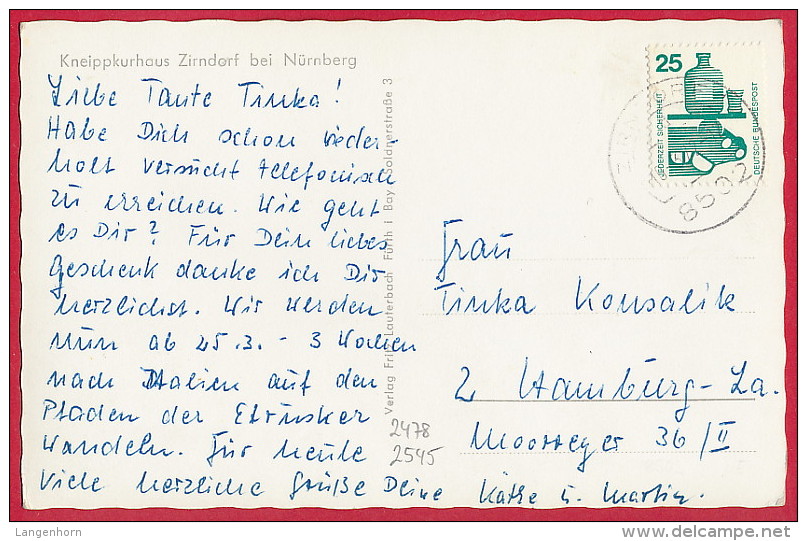 Kneippkurhaus Zirndorf bei Nürnberg
Liebe Tante Tinka!
Habe Dich schon wieder-
holt versucht telefonisch
zu erreichen. Wie geht
es Dir? Für Dein liebes
Geschenk danke ich Dir
herzlichst. Wir werden
nun ab 25.3. - 3 Wochen
nach Italien auf den
Pfaden der Etrusker
wandeln. Für heute
viele herzliche Grüße Deine Käthe u. Martin.
Verlag Fritz Lauterbach Fürth I Bay Soldnerstraße 3
25
JEDERZEIT SICHERHEIT
DEUTSCHE BUNDESPOST
8502
Frau
Tinka Konsalik
2 Hamburg-La.
Moorreger 36/II
2478
2545
Langenhorn
www.delcampe.net